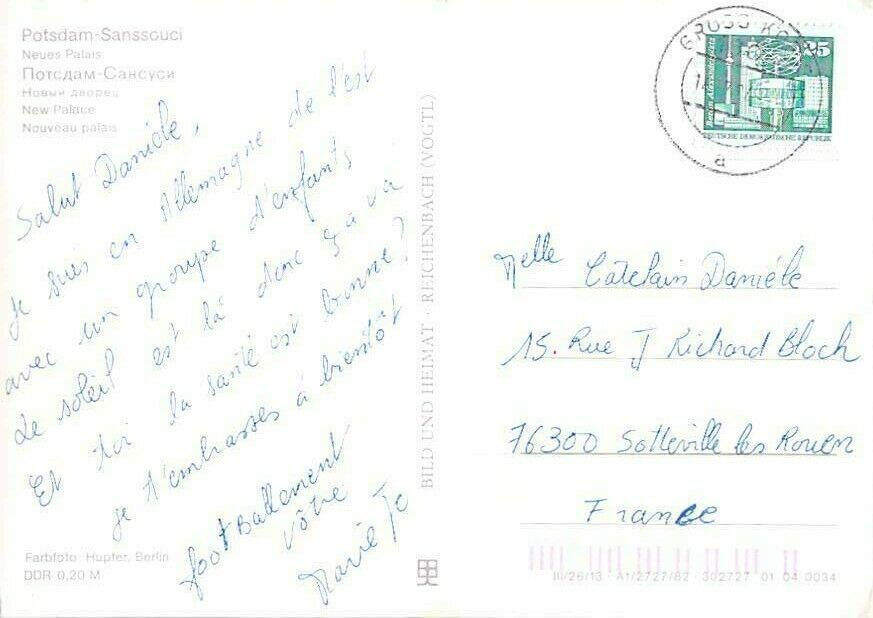 Potsdam-Sanssouci
Neues Palais
Потсдам-Сансуси
Новый дворец
New Palace
Nouveau palais
Salut Danièle,
Je suis en Allemagne de l'est
avec un groupe d'enfants
Le soleil est là donc ça va
Et toi la santé est bonne?
Je t'embrasses à bientôt
footBallement
vôtre
Marie Jo
Farbfoto: Hupfer, Berlin
DDR 0,20 M
BILD UND HEIMAT · REICHENBACH (VOGTL)
GROSS
a
25
Berlin, Alexanderplatz
DEUTSCHE DEMOKRATISCHE REPUBLIK
Melle Catelain Danièle
15. Rue J Richard Bloch
76300 Sotteville les Rouen
France
III/26/13 · A1/2727/82 · 302727 01 04 0034